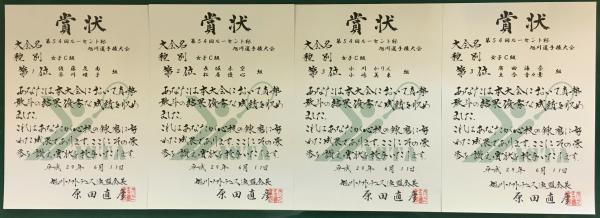 賞状
大会名
第54回ルーセント杯
旭川選手権大会
種別
女子C組
第1位
組
あなたは本大会において真勢
敢斗の結果優秀な成績を収め
ました
これはあなたが心技の錬磨に努
めた成果であります ここにその栄
誉を讃え賞状を授与いたします
平成29年6月11日
旭川ソフトテニス連盟会長
原田直彦
賞状
大会名
第54回ルーセント杯
旭川選手権大会
種別
女子C組
第2位
組
あなたは本大会において真勢
敢斗の結果優秀な成績を収め
ました
これはあなたが心技の錬磨に努
めた成果であります ここにその栄
誉を讃え賞状を授与いたします
平成29年6月11日
旭川ソフトテニス連盟会長
原田直彦
賞状
大会名
第54回ルーセント杯
旭川選手権大会
種別
女子C組
第3位
組
あなたは本大会において真勢
敢斗の結果優秀な成績を収め
ました
これはあなたが心技の錬磨に努
めた成果であります ここにその栄
誉を讃え賞状を授与いたします
平成29年6月11日
旭川ソフトテニス連盟会長
原田直彦
賞状
大会名
第54回ルーセント杯
旭川選手権大会
種別
女子C組
第3位
組
あなたは本大会において真勢
敢斗の結果優秀な成績を収め
ました
これはあなたが心技の錬磨に努
めた成果であります ここにその栄
誉を讃え賞状を授与いたします
平成29年6月11日
旭川ソフトテニス連盟会長
原田直彦